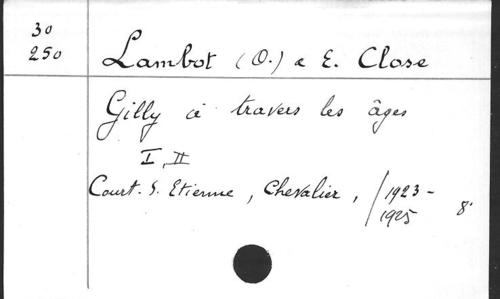 30
250
Lambot (O.) & E. Close
Gilly à travers les âges
I, II
Court. S. Etienne, Chevalier, /1923-
1925 8°